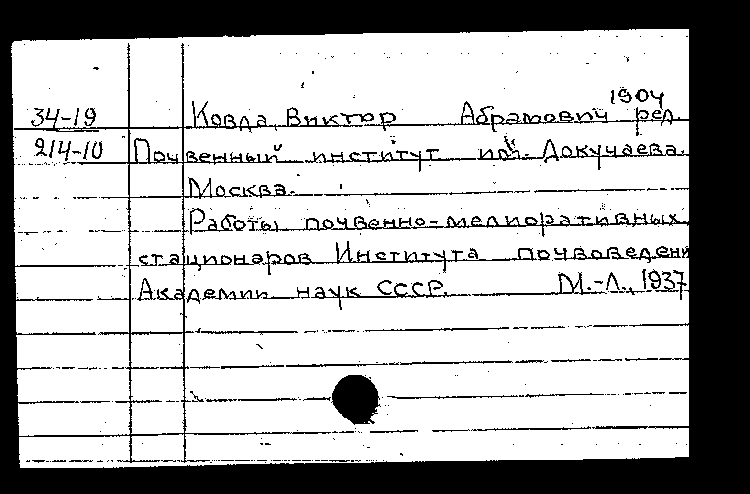 1904
34-19 Ковда, Виктор Абрамович ред.
214-10 Почвенный институт Докучаева.
Москва.
Работы почвенно-мелиоративных
стационаров Института почвоведени
Академии наук СССР. М.-Л., 1937